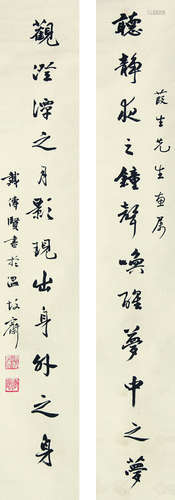 聽靜夜之鐘聲喚醒夢中之夢
葭生先生惠屬
觀澄潭之月影現出身外之身
戴傳賢書於溫故齋